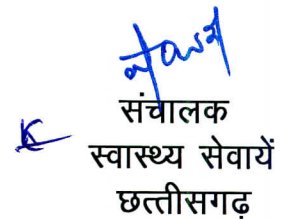 संचालक
स्वास्थ्य सेवायें
छत्तीसगढ़